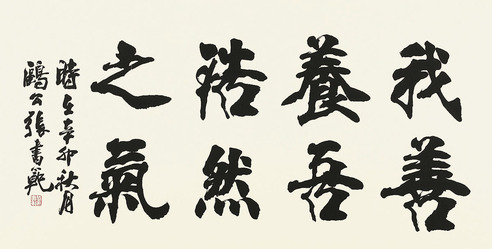 我善
養吾
浩然
之氣
時在辛卯秋月
鷗公張書範